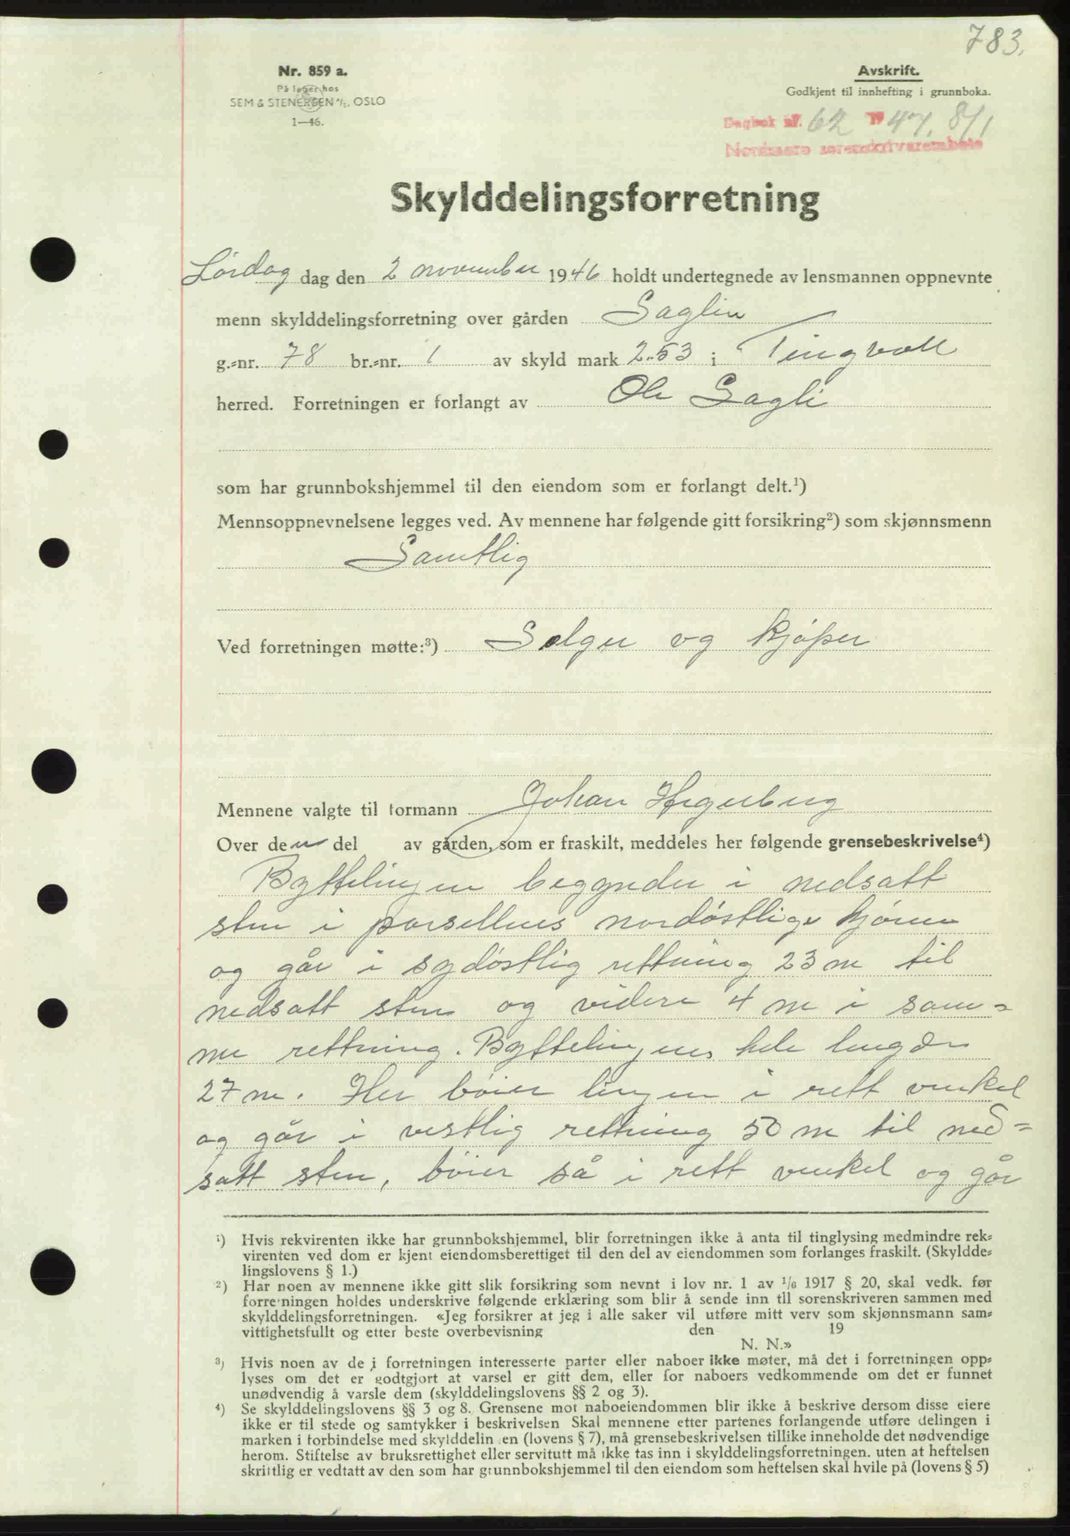 783.
Nr. 859 a.
På lager hos
SEM & STENERSEN A/S, OSLO
1—46.
Avskrift.
Godkjent til innhefting i grunnboka.
Dagbok nr. 62 1947, 8/1
Nordmøre sorenskriverembete
Skylddelingsforretning
Lørdag dag den 2 november 1946 holdt undertegnede av lensmannen oppnevnte
menn skylddelingsforretning over gården Saglin
g.=nr. 78 br.=nr. 1 av skyld mark 2.53 i Tingvoll
herred. Forretningen er forlangt av Ole Sagli
som har grunnbokshjemmel til den eiendom som er forlangt delt.¹)
Mennsoppnevnelsene legges ved. Av mennene har følgende gitt forsikring²) som skjønnsmenn
Samtlig
Ved forretningen møtte:³) Selger og kjøper
Mennene valgte til formann Johan Hegerberg
Over den del av gården, som er fraskilt, meddeles her følgende grensebeskrivelse⁴)
Byttelinjen begynder i nedsatt
sten i parsellens nordøstlige hjørne
og går i sydøstlig rettning 23 m til
nedsatt sten og videre 4 m i sam=
me rettning. Byttelinjens hele lengde
27 m. Her bøier linjen i rett vinkel
og går i vestlig rettning 50 m til ned=
satt sten, bøier så i rett vinkel og går
¹) Hvis rekvirenten ikke har grunnbokshjemmel, blir forretningen ikke å anta til tinglysing medmindre rek=
virenten ved dom er kjent eiendomsberettiget til den del av eiendommen som forlanges fraskilt. (Skyldde=
lingslovens § 1.)
²) Har noen av mennene ikke gitt slik forsikring som nevnt i lov nr. 1 av 1/6 1917 § 20, skal vedk. før
forretningen holdes underskrive følgende erklæring som blir å sende inn til sorenskriveren sammen med
skylddelingsforretningen. «Jeg forsikrer at jeg i alle saker vil utføre mitt verv som skjønnsmann sam=
vittighetsfullt og etter beste overbevisning den 19
N. N.»
³) Hvis noen av de i forretningen interesserte parter eller naboer ikke møter, må det i forretningen opp=
lyses om det er godtgjort at varsel er gitt dem, eller for naboers vedkommende om det er funnet
unødvendig å varsle dem (skylddelingslovens §§ 2 og 3).
⁴) Se skylddelingslovens §§ 3 og 8. Grensene mot naboeiendommen blir ikke å beskrive dersom disse eiere
ikke er til stede og samtykker i beskrivelsen Skal mennene etter partenes forlangende utføre delingen i
marken i forbindelse med skylddelin en (lovens § 7), må grensebeskrivelsen tillike inneholde det nødvendige
herom. Stiftelse av bruksrettighet eller servitutt må ikke tas inn i skylddelingsforretningen. uten at heftelsen
skriftlig er vedtatt av den som har grunnbokshjemmel til den eiendom som heftelsen skal hvile på (lovens § 5)